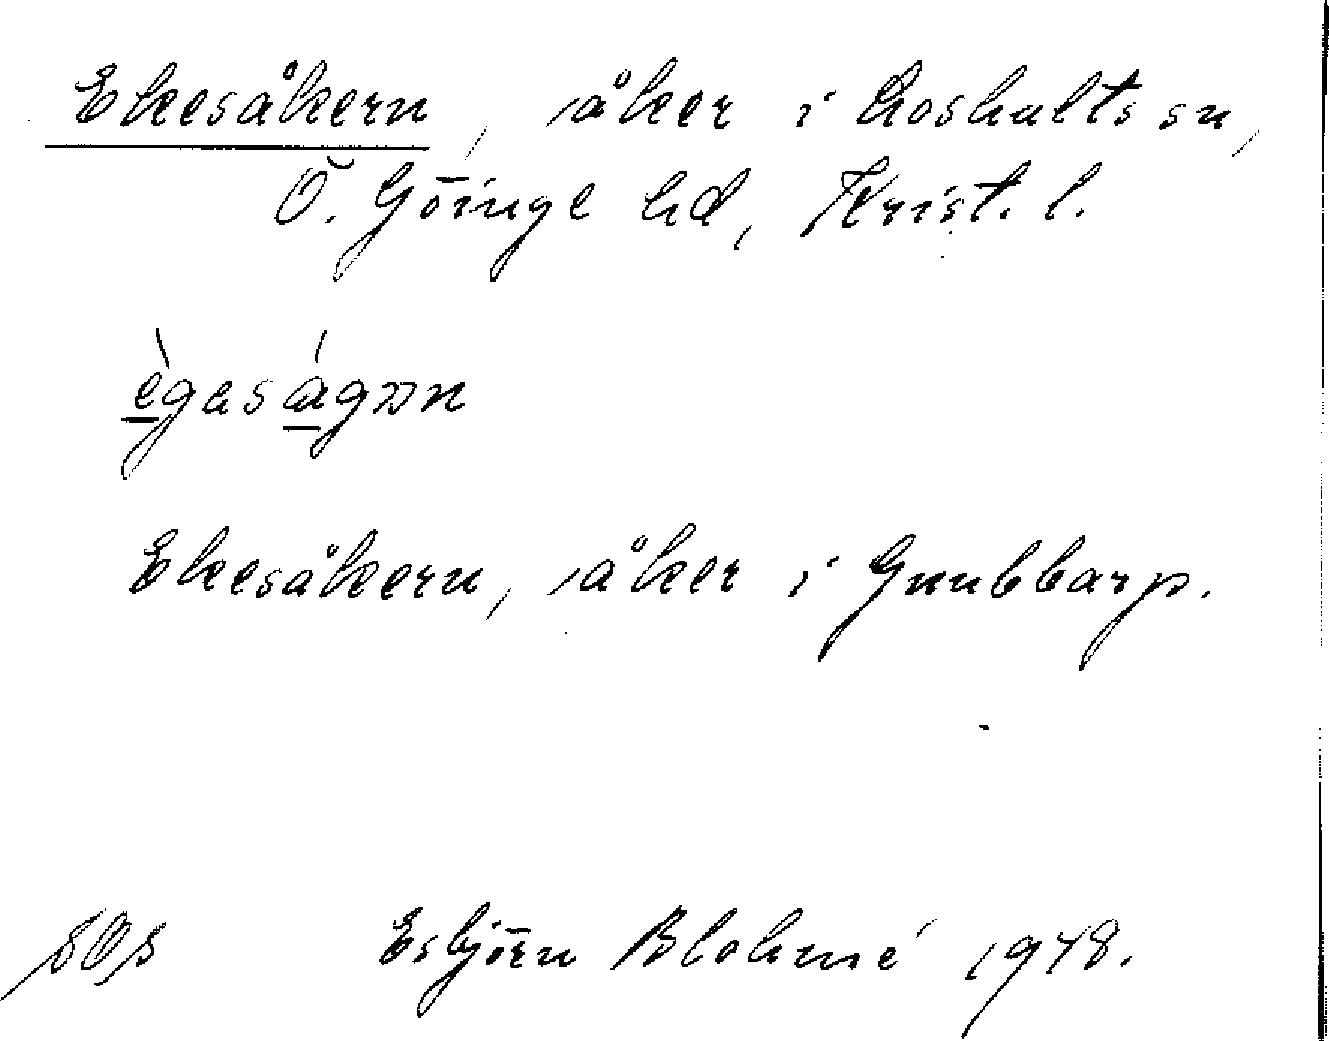 Ekesåkern, åker i Loshults sn,
Ö. Göinge hd, Krist. l.
ègaságɔn
Ekesåkern, åker i Gnubbarp.
Esbjörn Blohmé 1948.